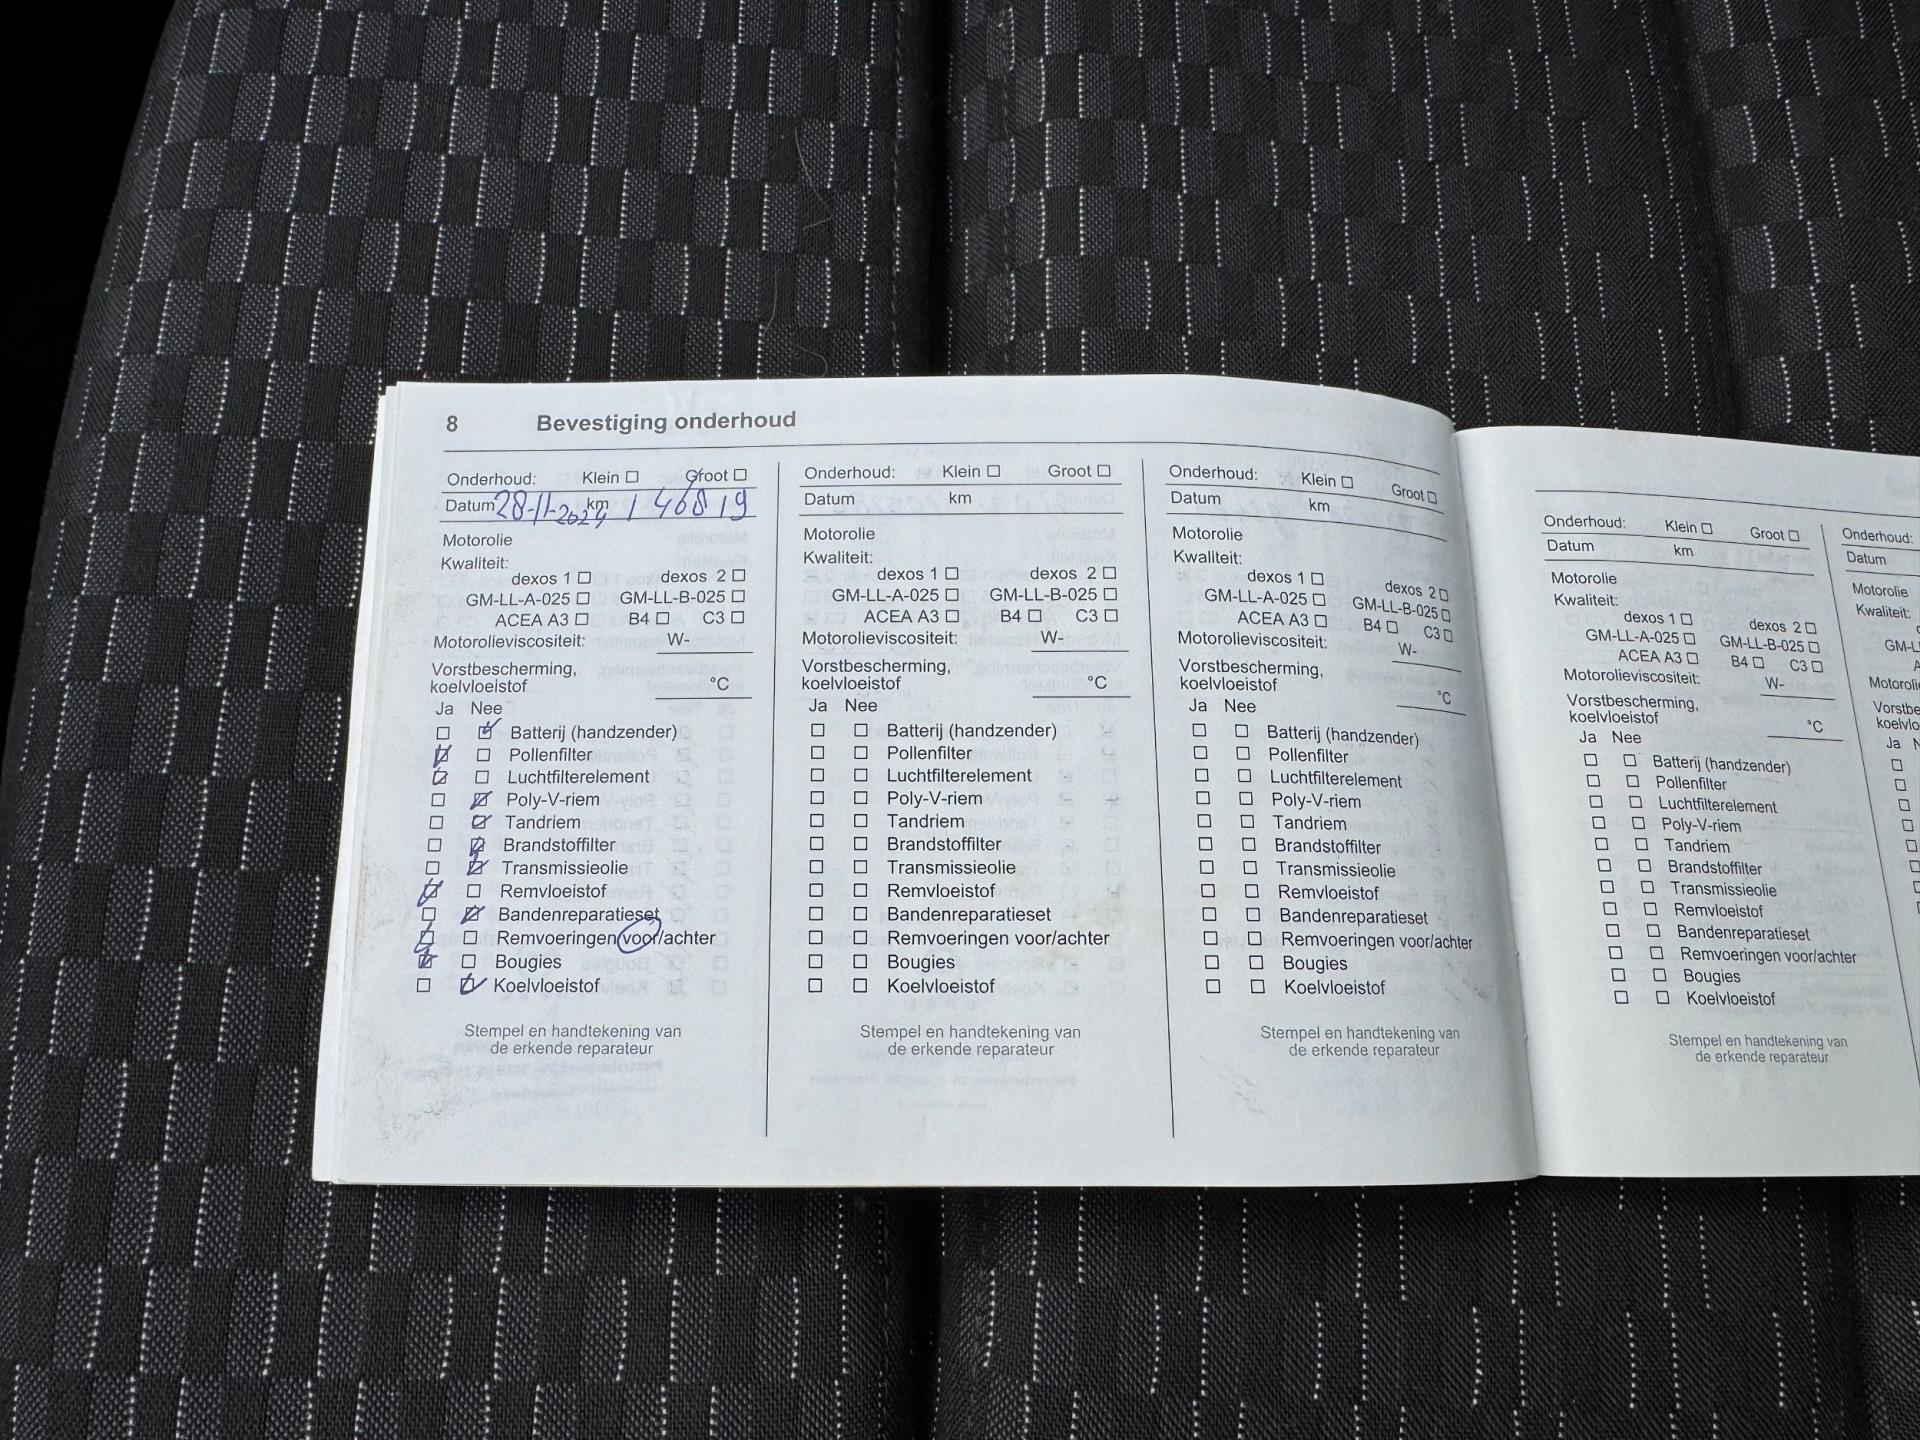 8 Bevestiging onderhoud
Onderhoud: Klein ☐ Groot ☐
Datum 28-11-2024 km 146819
Motorolie
Kwaliteit:
dexos 1 ☐ dexos 2 ☐
GM-LL-A-025 ☐ GM-LL-B-025 ☐
ACEA A3 ☐ B4 ☐ C3 ☐
Motorolieviscositeit: W-
Vorstbescherming,
koelvloeistof °C
Ja Nee
☐ ☑ Batterij (handzender)
☑ ☐ Pollenfilter
☑ ☐ Luchtfilterelement
☐ ☑ Poly-V-riem
☐ ☑ Tandriem
☐ ☑ Brandstoffilter
☐ ☑ Transmissieolie
☑ ☐ Remvloeistof
☐ ☑ Bandenreparatieset
☑ ☐ Remvoeringen voor/achter
☑ ☐ Bougies
☐ ☑ Koelvloeistof
Stempel en handtekening van
de erkende reparateur
Onderhoud: Klein ☐ Groot ☐
Datum km
Motorolie
Kwaliteit:
dexos 1 ☐ dexos 2 ☐
GM-LL-A-025 ☐ GM-LL-B-025 ☐
ACEA A3 ☐ B4 ☐ C3 ☐
Motorolieviscositeit: W-
Vorstbescherming,
koelvloeistof °C
Ja Nee
☐ ☐ Batterij (handzender)
☐ ☐ Pollenfilter
☐ ☐ Luchtfilterelement
☐ ☐ Poly-V-riem
☐ ☐ Tandriem
☐ ☐ Brandstoffilter
☐ ☐ Transmissieolie
☐ ☐ Remvloeistof
☐ ☐ Bandenreparatieset
☐ ☐ Remvoeringen voor/achter
☐ ☐ Bougies
☐ ☐ Koelvloeistof
Stempel en handtekening van
de erkende reparateur
Onderhoud: Klein ☐ Groot ☐
Datum km
Motorolie
Kwaliteit:
dexos 1 ☐ dexos 2 ☐
GM-LL-A-025 ☐ GM-LL-B-025 ☐
ACEA A3 ☐ B4 ☐ C3 ☐
Motorolieviscositeit: W-
Vorstbescherming,
koelvloeistof °C
Ja Nee
☐ ☐ Batterij (handzender)
☐ ☐ Pollenfilter
☐ ☐ Luchtfilterelement
☐ ☐ Poly-V-riem
☐ ☐ Tandriem
☐ ☐ Brandstoffilter
☐ ☐ Transmissieolie
☐ ☐ Remvloeistof
☐ ☐ Bandenreparatieset
☐ ☐ Remvoeringen voor/achter
☐ ☐ Bougies
☐ ☐ Koelvloeistof
Stempel en handtekening van
de erkende reparateur
Onderhoud: Klein ☐ Groot ☐
Datum km
Motorolie
Kwaliteit:
dexos 1 ☐ dexos 2 ☐
GM-LL-A-025 ☐ GM-LL-B-025 ☐
ACEA A3 ☐ B4 ☐ C3 ☐
Motorolieviscositeit: W-
Vorstbescherming,
koelvloeistof °C
Ja Nee
☐ ☐ Batterij (handzender)
☐ ☐ Pollenfilter
☐ ☐ Luchtfilterelement
☐ ☐ Poly-V-riem
☐ ☐ Tandriem
☐ ☐ Brandstoffilter
☐ ☐ Transmissieolie
☐ ☐ Remvloeistof
☐ ☐ Bandenreparatieset
☐ ☐ Remvoeringen voor/achter
☐ ☐ Bougies
☐ ☐ Koelvloeistof
Stempel en handtekening van
de erkende reparateur
Onderhoud:
Datum
Motorolie
Kwaliteit:
Ja